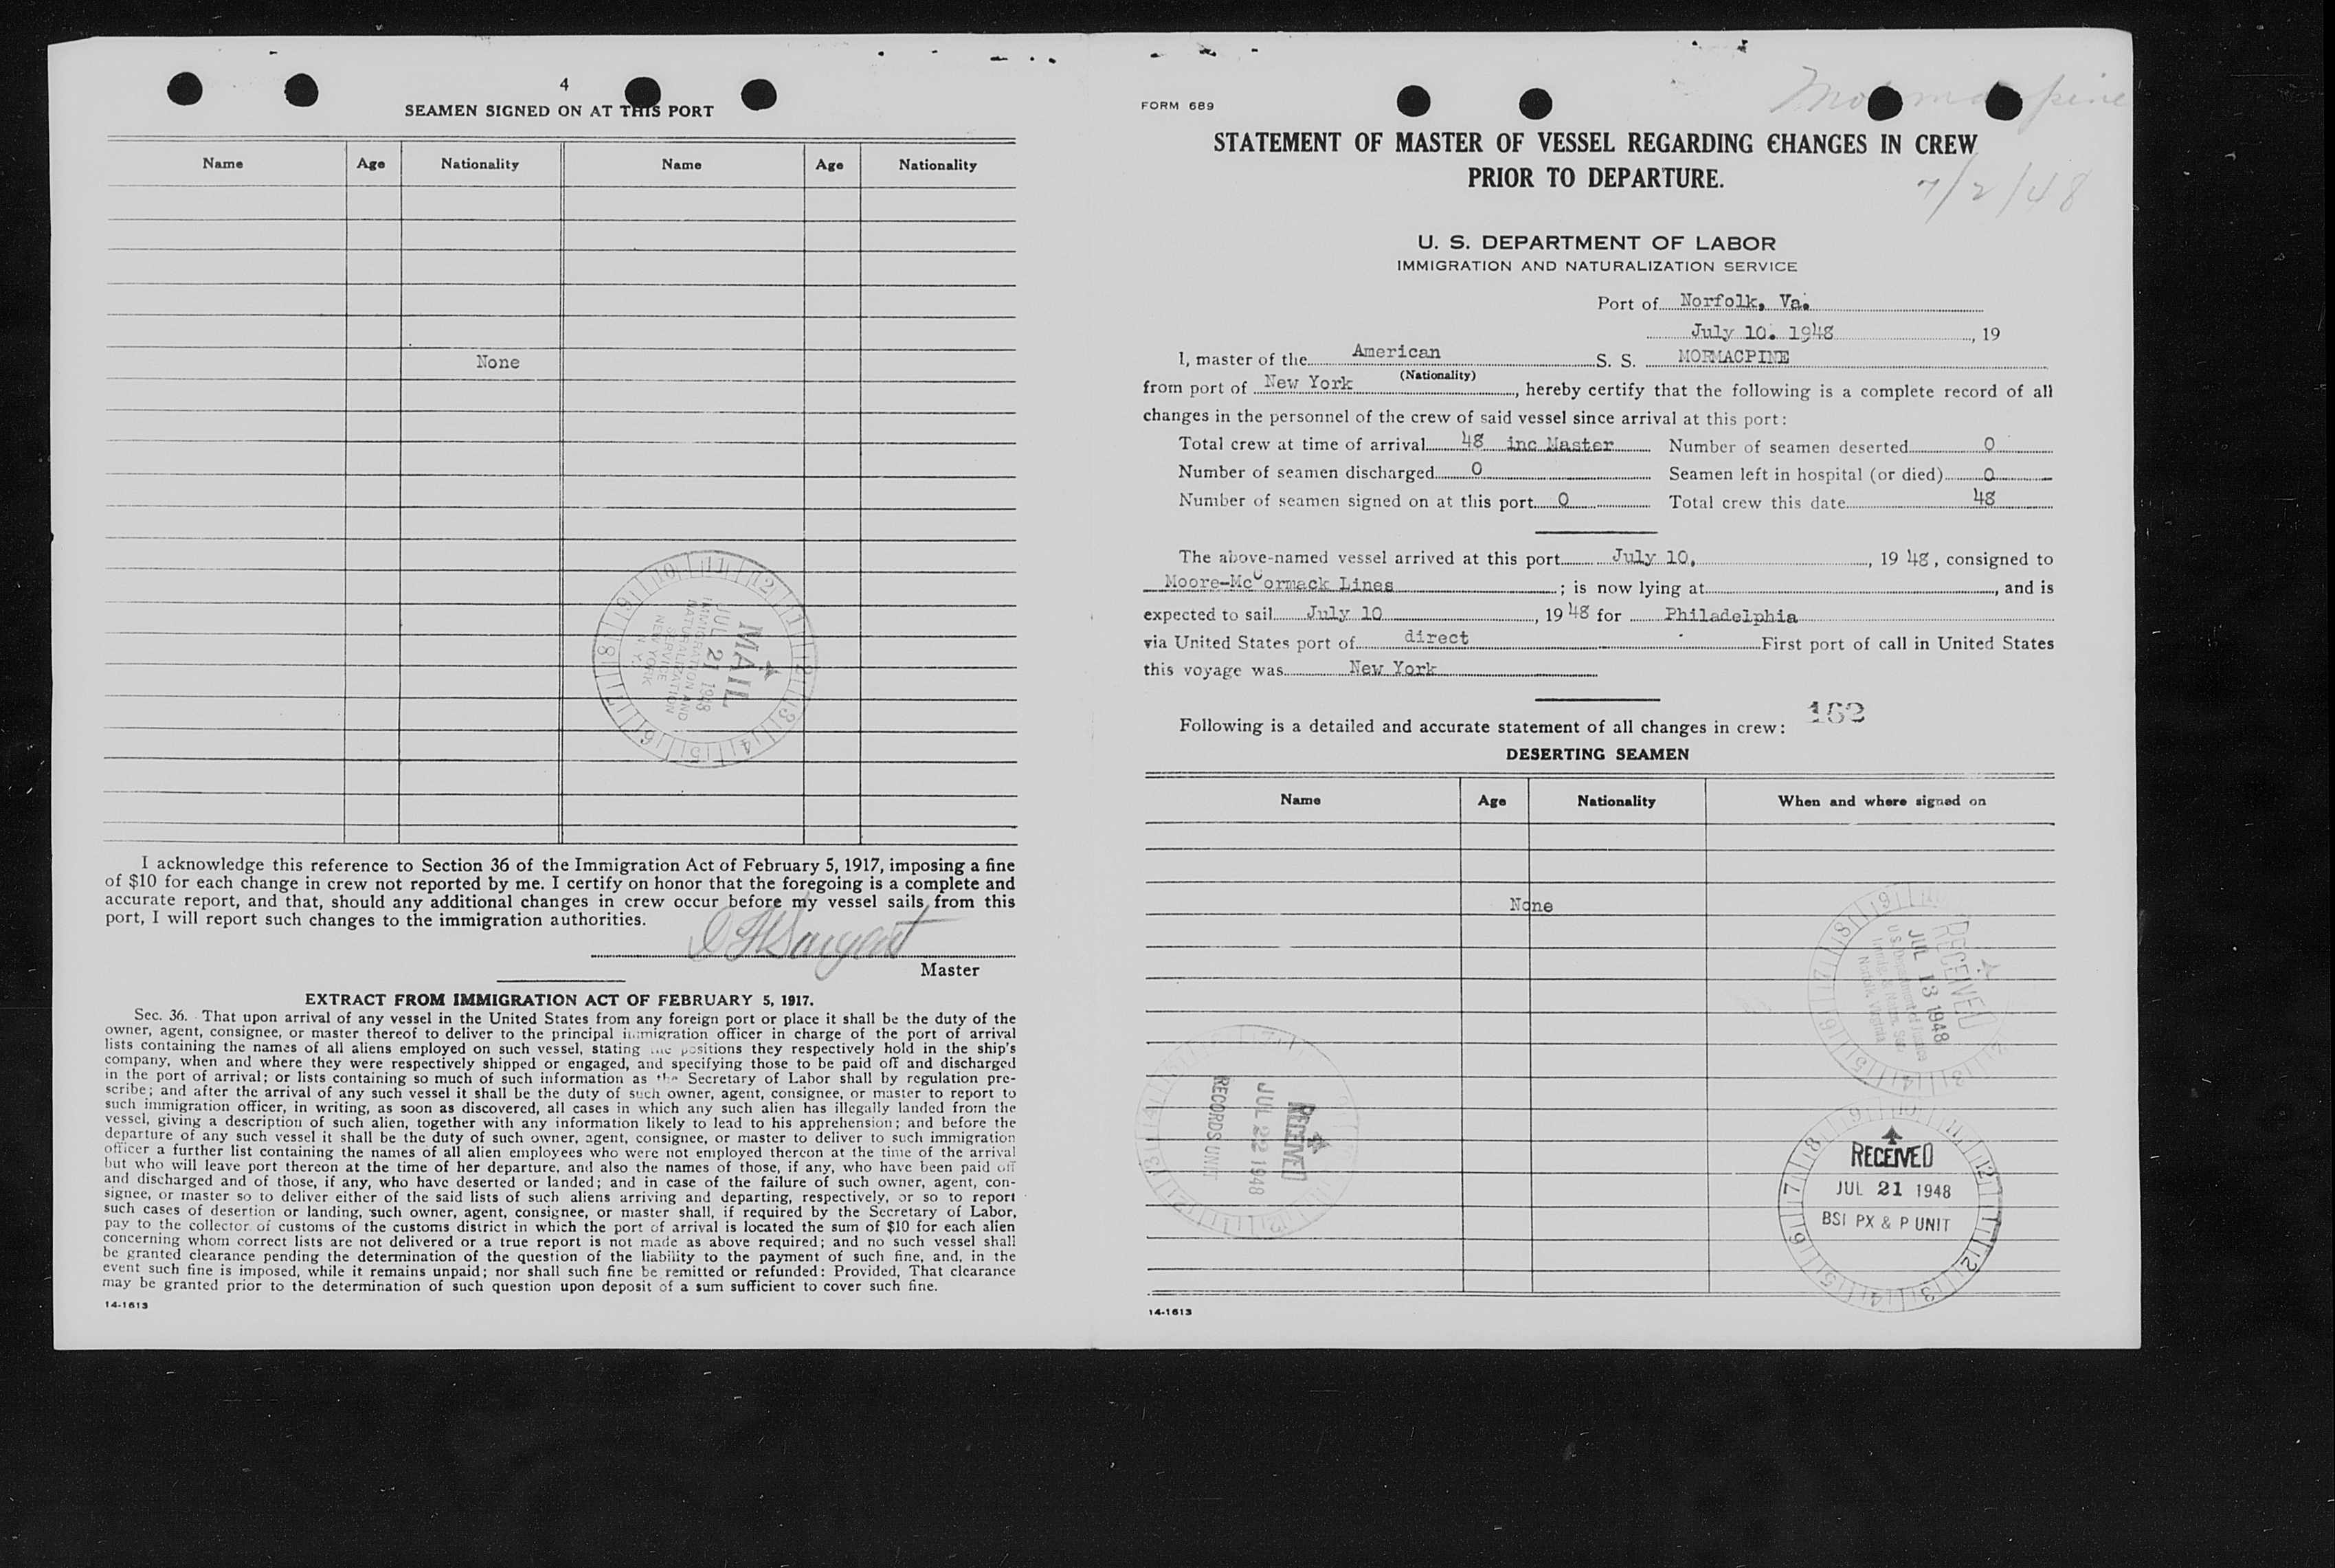 4
SEAMEN SIGNED ON AT THIS PORT
Name Age Nationality Name Age Nationality
None
MAIL
JUL 21 1948
IMMIGRATION AND
NATURALIZATION
SERVICE
NEW YORK
N. Y.
I acknowledge this reference to Section 36 of the Immigration Act of February 5, 1917, imposing a fine
of $10 for each change in crew not reported by me. I certify on honor that the foregoing is a complete and
accurate report, and that, should any additional changes in crew occur before my vessel sails from this
port, I will report such changes to the immigration authorities.
Sargent
Master
EXTRACT FROM IMMIGRATION ACT OF FEBRUARY 5, 1917.
Sec. 36. That upon arrival of any vessel in the United States from any foreign port or place it shall be the duty of the
owner, agent, consignee, or master thereof to deliver to the principal immigration officer in charge of the port of arrival
lists containing the names of all aliens employed on such vessel, stating the positions they respectively hold in the ship's
company, when and where they were respectively shipped or engaged, and specifying those to be paid off and discharged
in the port of arrival; or lists containing so much of such information as the Secretary of Labor shall by regulation pre-
scribe; and after the arrival of any such vessel it shall be the duty of such owner, agent, consignee, or master to report to
such immigration officer, in writing, as soon as discovered, all cases in which any such alien has illegally landed from the
vessel, giving a description of such alien, together with any information likely to lead to his apprehension; and before the
departure of any such vessel it shall be the duty of such owner, agent, consignee, or master to deliver to such immigration
officer a further list containing the names of all alien employees who were not employed thereon at the time of the arrival
but who will leave port thereon at the time of her departure, and also the names of those, if any, who have been paid off
and discharged and of those, if any, who have deserted or landed; and in case of the failure of such owner, agent, con-
signee, or master so to deliver either of the said lists of such aliens arriving and departing, respectively, or so to report
such cases of desertion or landing, such owner, agent, consignee, or master shall, if required by the Secretary of Labor,
pay to the collector of customs of the customs district in which the port of arrival is located the sum of $10 for each alien
concerning whom correct lists are not delivered or a true report is not made as above required; and no such vessel shall
be granted clearance pending the determination of the question of the liability to the payment of such fine, and, in the
event such fine is imposed, while it remains unpaid; nor shall such fine be remitted or refunded: Provided, That clearance
may be granted prior to the determination of such question upon deposit of a sum sufficient to cover such fine.
14-1613
FORM 689
Mormacpine
STATEMENT OF MASTER OF VESSEL REGARDING CHANGES IN CREW
PRIOR TO DEPARTURE.
7/2/48
U. S. DEPARTMENT OF LABOR
IMMIGRATION AND NATURALIZATION SERVICE
Port of Norfolk, Va.
July 10. 1948, 19
I, master of the American S. S. MORMACPINE
(Nationality)
from port of New York, hereby certify that the following is a complete record of all
changes in the personnel of the crew of said vessel since arrival at this port:
Total crew at time of arrival 48 inc Master Number of seamen deserted 0
Number of seamen discharged 0 Seamen left in hospital (or died) 0
Number of seamen signed on at this port 0 Total crew this date 48
The above-named vessel arrived at this port July 10, , 19 48, consigned to
Moore-McCormack Lines ; is now lying at , and is
expected to sail July 10 , 19 48 for Philadelphia
via United States port of direct First port of call in United States
this voyage was New York
162
Following is a detailed and accurate statement of all changes in crew:
DESERTING SEAMEN
Name Age Nationality When and where signed on
None
RECEIVED
JUL 13 1948
Norfolk, Virginia
RECEIVED
JUL 22 1948
RECORDS UNIT
RECEIVED
JUL 21 1948
BSI PX & P UNIT
14-1613